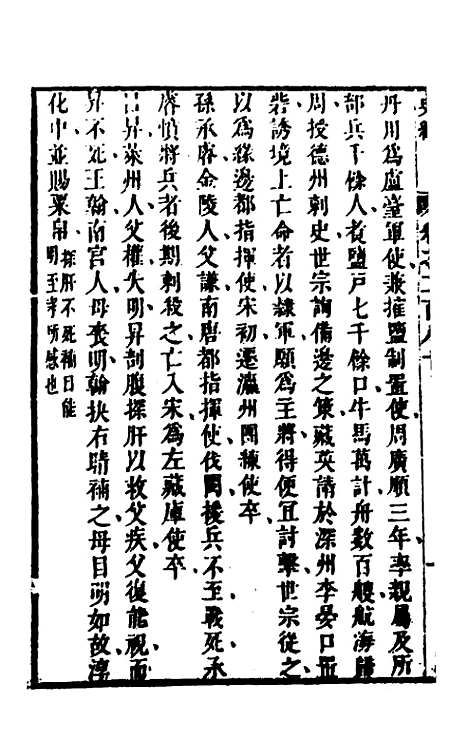 史緯
卷之二百八十
丹川為盧臺軍使兼榷鹽制置使周廣順三年率親屬及所
部兵千餘人煮鹽戶七千餘口牛馬萬計舟數百艘航海歸
周授德州刺史世宗詢備邊之策藏英請於深州李晏口置
砦誘境上亡命者以隸軍願為主將得便宜討擊世宗從之
以為緣邊都指揮使宋初遷瀛州團練使卒
孫承睿金陵人父謙南唐都指揮使伐閩援兵不至戰死承
睿憤將兵者後期刺殺之亡入宋為左藏庫使卒
呂昇萊州人父權失明昇剖腹探肝以救父疾父復能視而
昇不死王翰南宮人母喪明翰抉右睛補之母目明如故淳
化中並賜粟帛探肝不死補目能
明至孝所感也